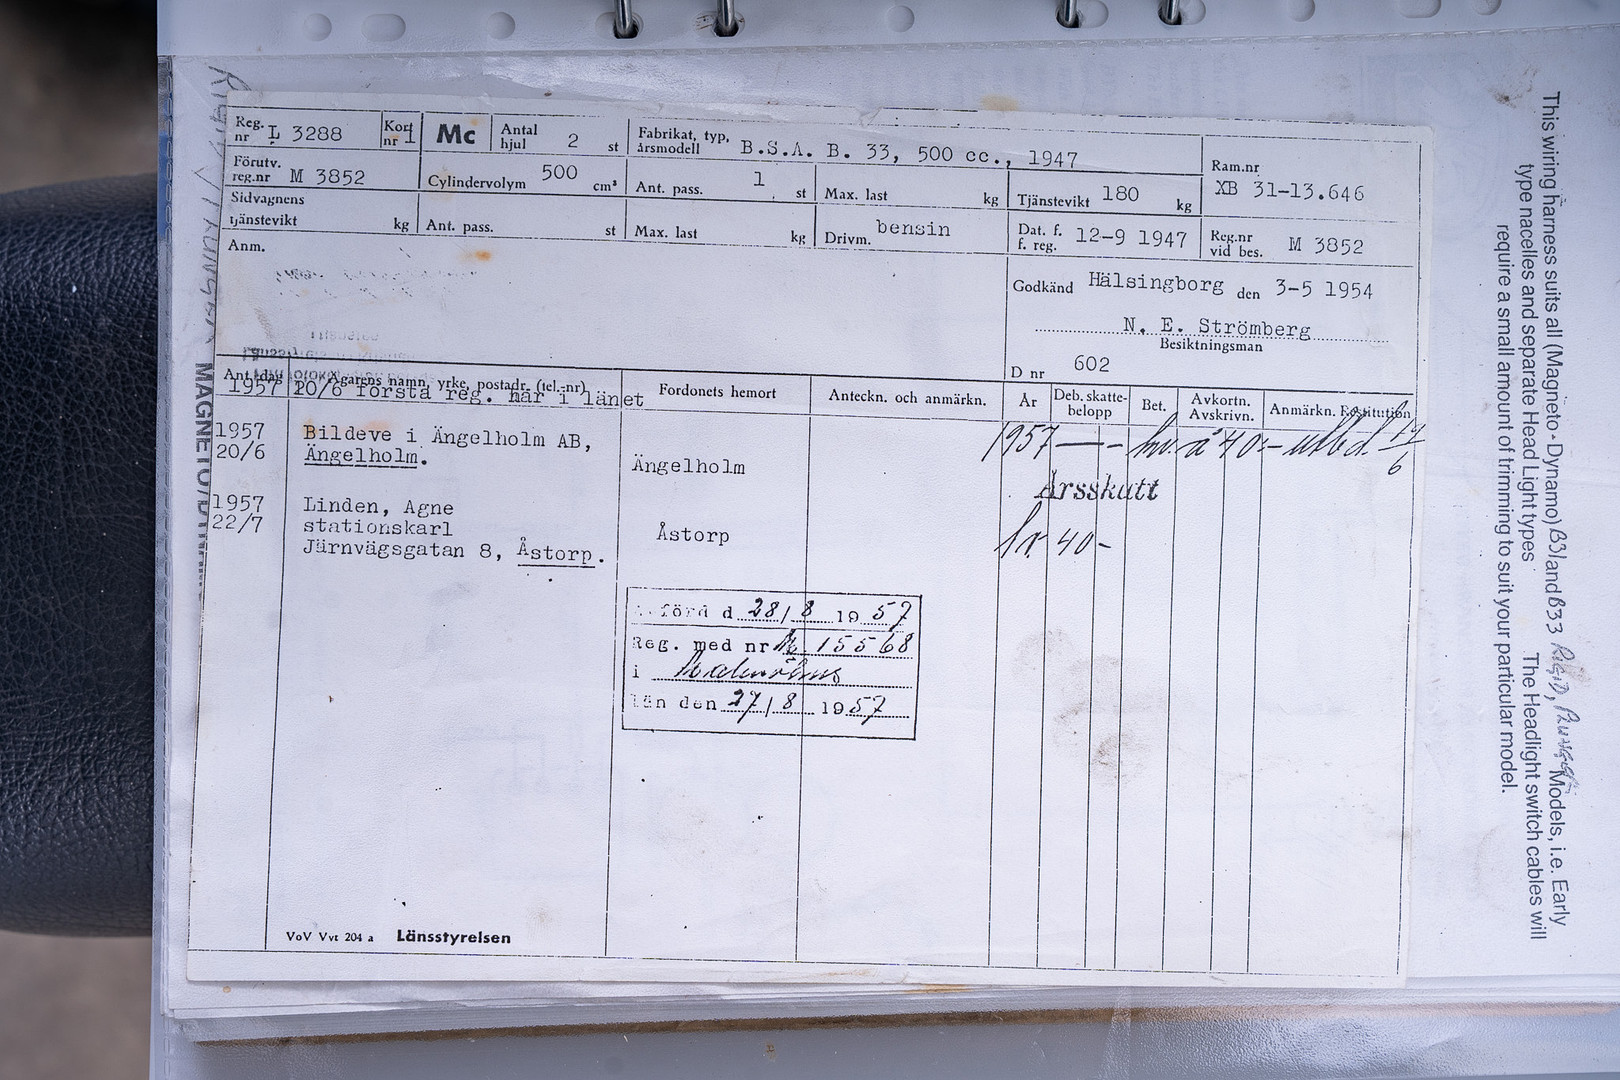 Reg. nr L 3288
Kort nr 1
Mc
Antal hjul 2 st
Fabrikat, typ, årsmodell B.S.A. B. 33, 500 cc., 1947
Ram.nr
XB 31-13.646
Förutv. reg.nr M 3852
Cylindervolym 500 cm³
Ant. pass. 1 st
Max. last kg
Tjänstevikt 180 kg
Sidvagnens
tjänstevikt kg
Ant. pass. st
Max. last kg
Drivm. bensin
Dat. f. f. reg. 12-9 1947
Reg.nr vid bes. M 3852
Anm.
Godkänd Hälsingborg den 3-5 1954
N. E. Strömberg
Besiktningsman
D nr 602
Ant.dag
Ägarens namn, yrke, postadr. (tel.-nr)
Fordonets hemort
Anteckn. och anmärkn.
År
Deb. skatte-belopp
Bet.
Avkortn. Avskrivn.
Anmärkn. Restitution
1957 20/6 första reg. här i länet
1957 20/6
Bildeve i Ängelholm AB,
Ängelholm.
Ängelholm
1957
Årsskutt
1957 22/7
Linden, Agne
stationskarl
Järnvägsgatan 8, Åstorp.
Åstorp
kr 40-
förd d. 28/8 1957
Reg. med nr M. 15568
i Malmöhus
län den 27/8 1957
VoV Vvt 204 a Länsstyrelsen
This wiring harness suits all (Magneto-Dynamo) B31 and B33 RIGID, PLUNGER Models, i.e. Early
type nacelles and separate Head Light types The Headlight switch cables will
require a small amount of trimming to suit your particular model.
RIGID / PLUNGER